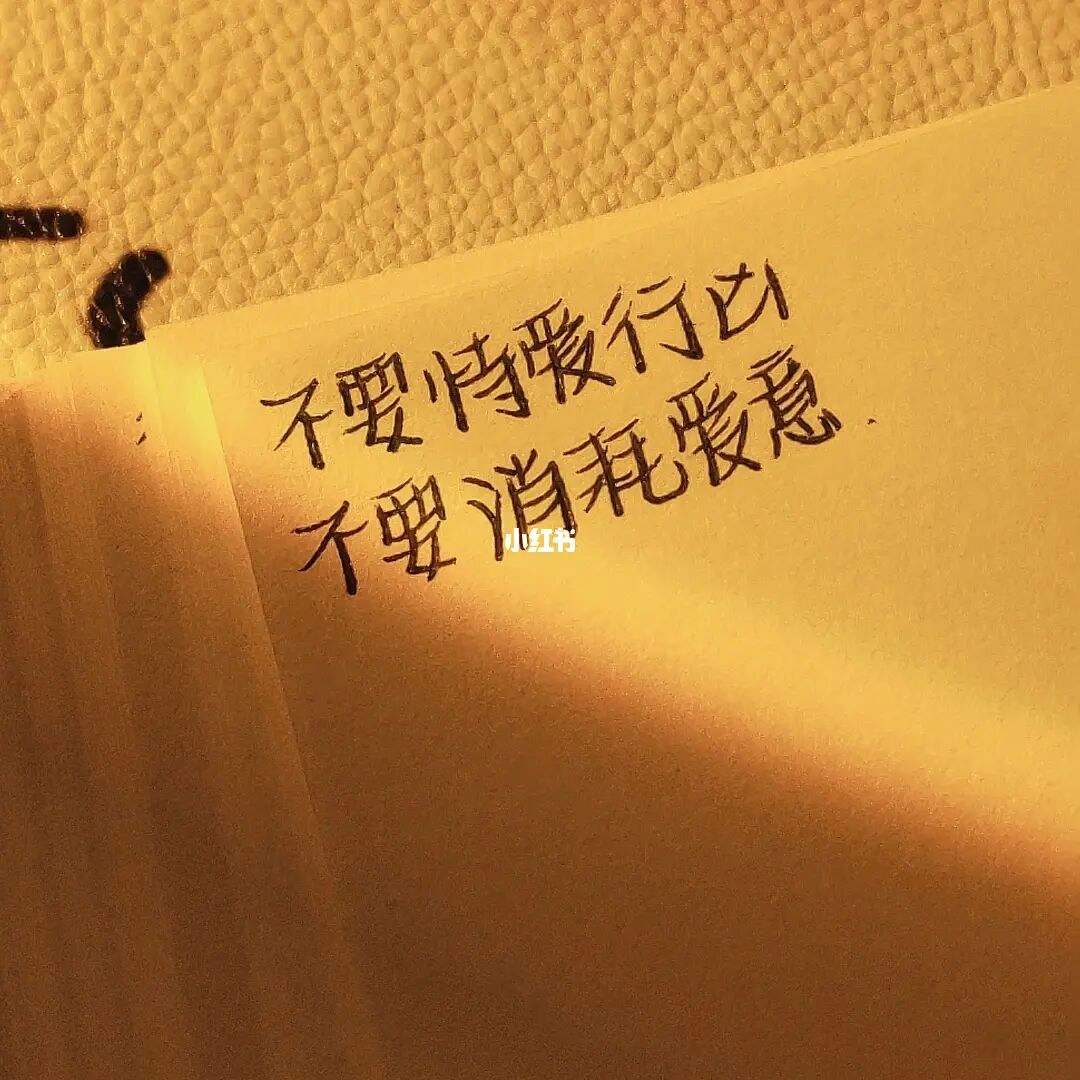 不要恃爱行凶
不要消耗爱意.
小红书